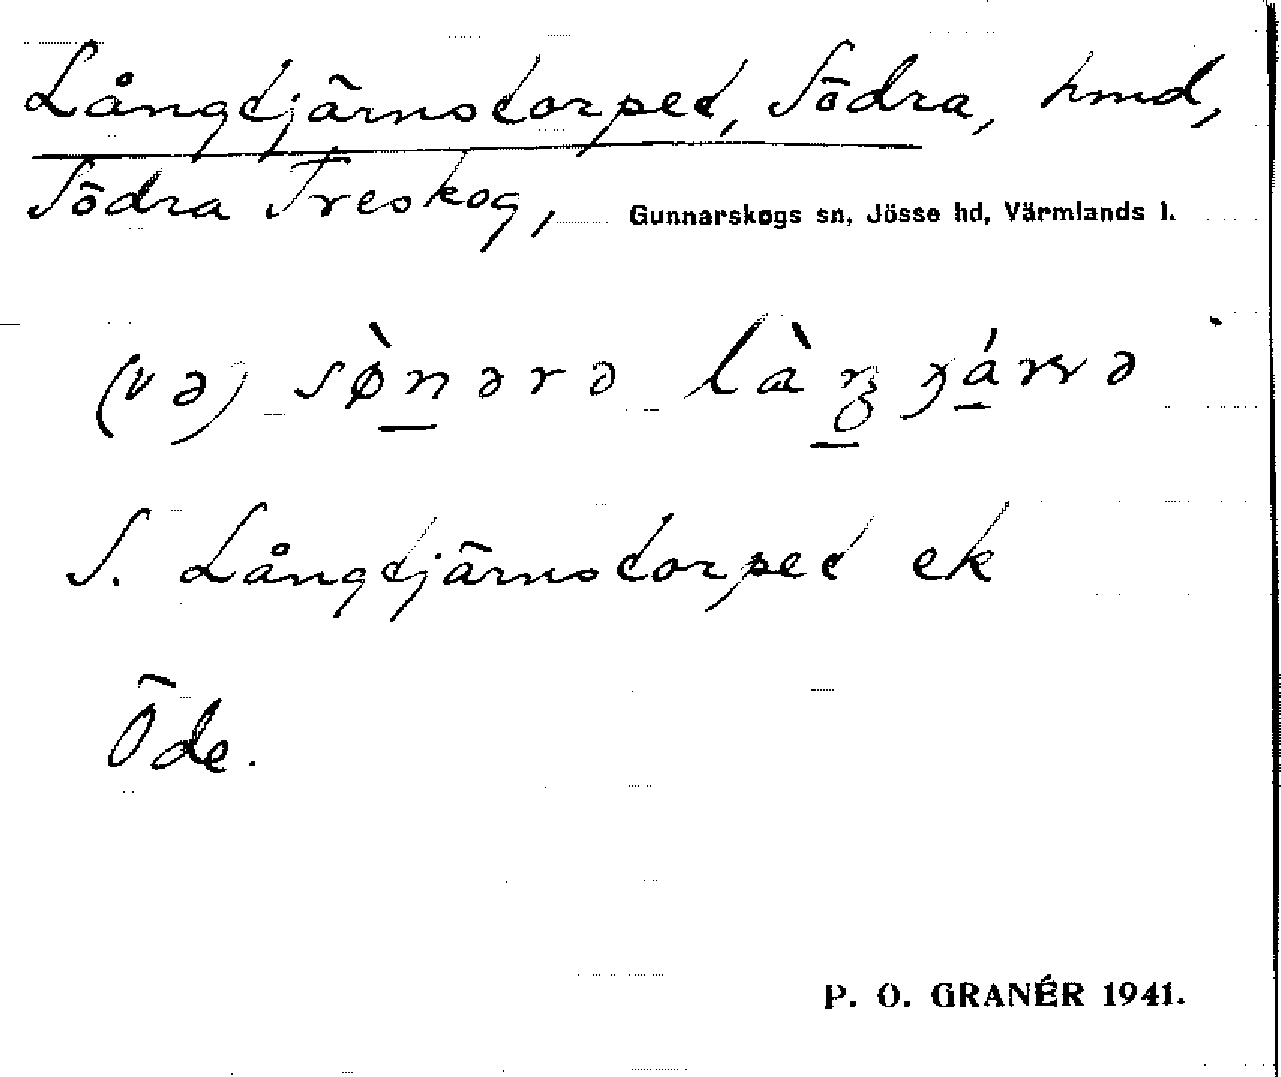 Långtjärnstorpet, Södra, hmd,
Södra Treskog, Gunnarskogs sn, Jösse hd, Värmlands l.
(və) sø̀nərə
S. Långtjärnstorpet ek
Öde.
P. O. GRANÉR 1941.